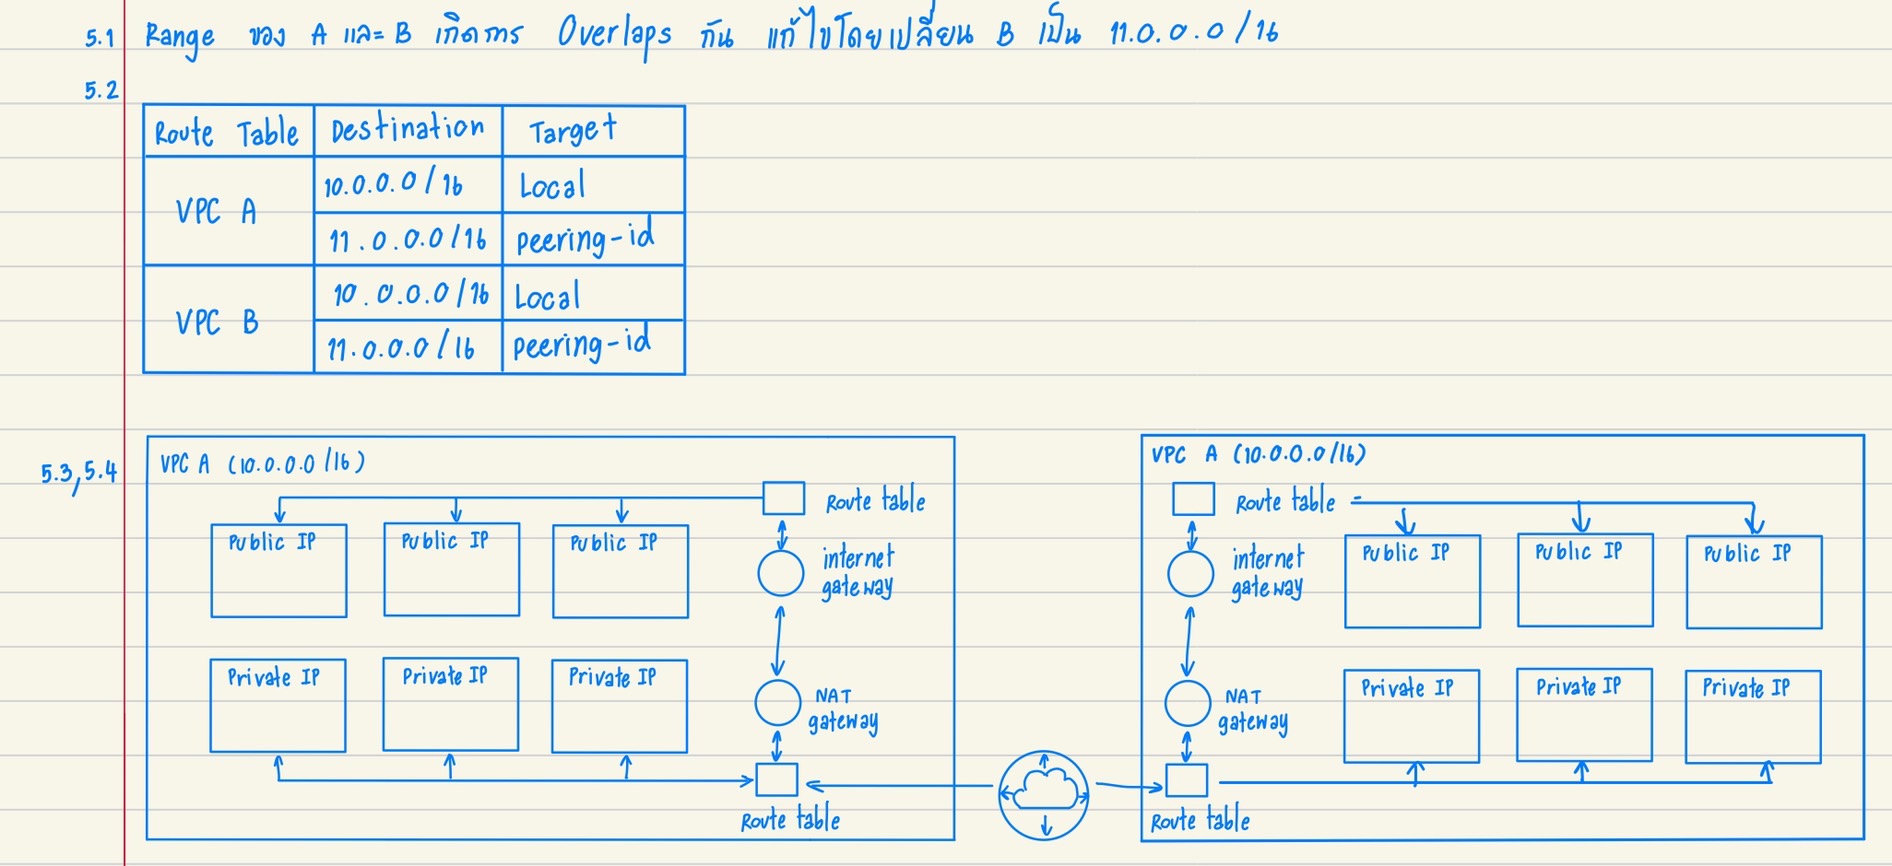 5.1 Range ของ A และ B เกิดการ Overlaps กัน แก้ไขโดยเปลี่ยน B เป็น 11.0.0.0/16
5.2
Route Table Destination Target
VPC A
10.0.0.0/16 Local
11.0.0.0/16 peering-id
VPC B
10.0.0.0/16 Local
11.0.0.0/16 peering-id
5.3,5.4
VPC A (10.0.0.0/16)
Route table
Public IP Public IP Public IP
internet
gateway
Private IP Private IP Private IP
NAT
gateway
Route table
VPC A (10.0.0.0/16)
Route table
internet
gateway
Public IP Public IP Public IP
NAT
gateway
Private IP Private IP Private IP
Route table